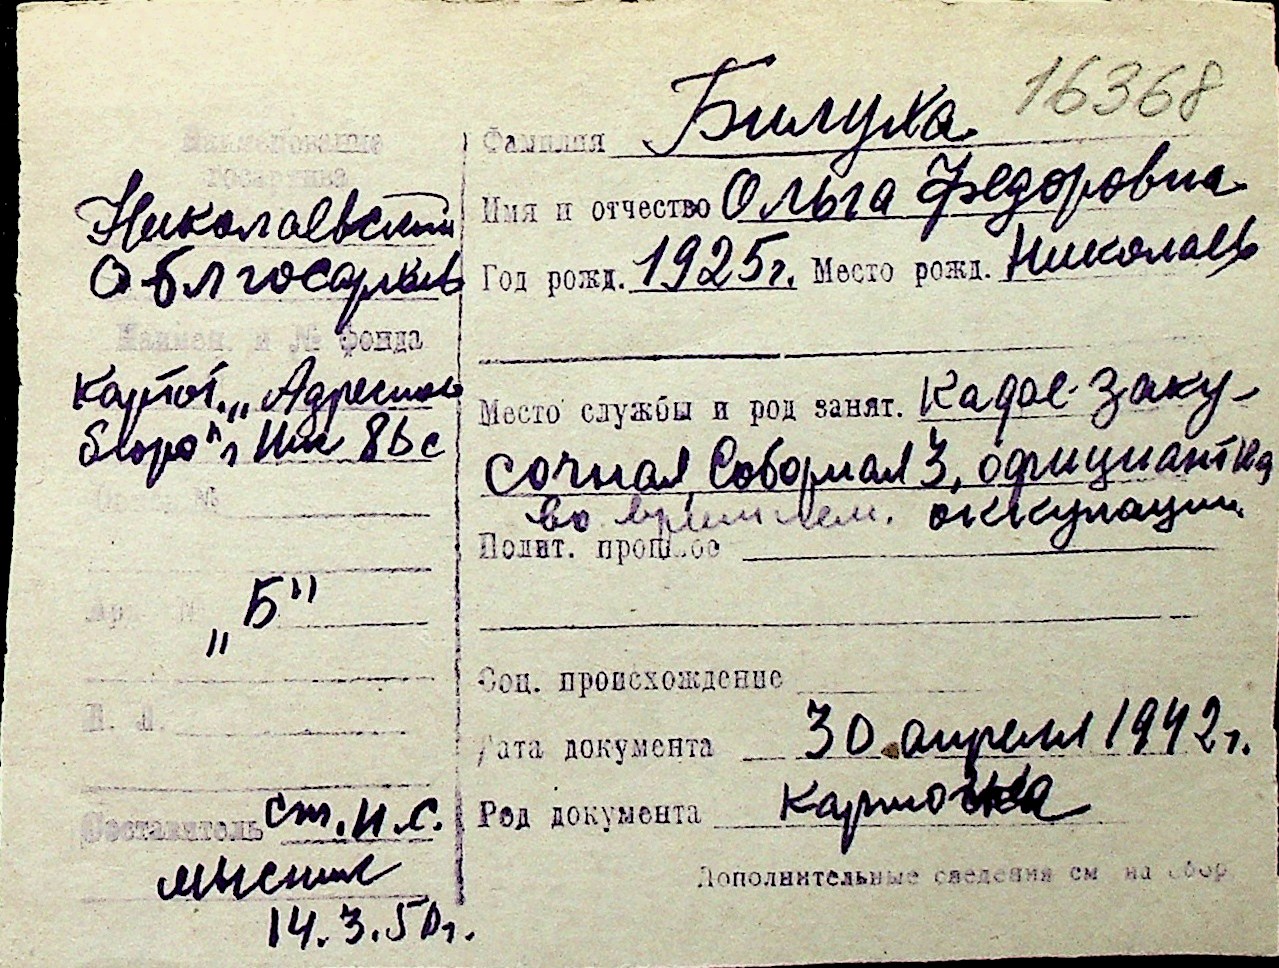 16368
Наименование
госархива
Николаевский
Облгосархив
Наимен. и № фонда
картот. „Адресного
бюро",
„Б"
Л. Л.
Составитель ст. н. с.
14.3.50г.
Фамилия Билуха
Имя и отчество Ольга Федоровна
Год рожд. 1925г. Место рожд. Николаев
Место службы и род занят. Кафе-заку-
сочная Соборная 3, официантка
во время нем. оккупации.
Полит. прошлое
Соц. происхождение
Дата документа 30 апреля 1942г.
Род документа карточка
Дополнительные сведения см на обор.